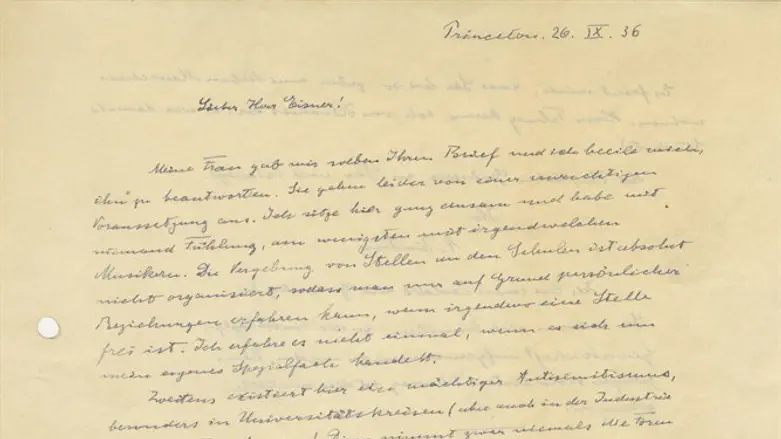 Princeton. 26. IX. 36
Lieber Herr Eisner!
Meine Frau gab mir soeben Ihren Brief und ich beeile mich,
ihn zu beantworten. Sie gehen leider von einer unrichtigen
Voraussetzung aus. Ich sitze hier ganz einsam und habe mit
niemand Fühlung, am wenigsten mit irgendwelchen
Musikern. Die Vergebung von Stellen an den Schulen ist absolut
nicht organisiert, sodass man nur auf Grund persönlicher
Beziehungen erfahren kann, wenn irgendwo eine Stelle
frei ist. Ich erfahre es nicht einmal, wenn es sich um
mein eigenes Spezialfach handelt.
Zweitens existiert hier ein mächtiger Antisemitismus,
besonders in Universitätskreisen (aber auch in der Industrie
nimmt zwar niemals die Form